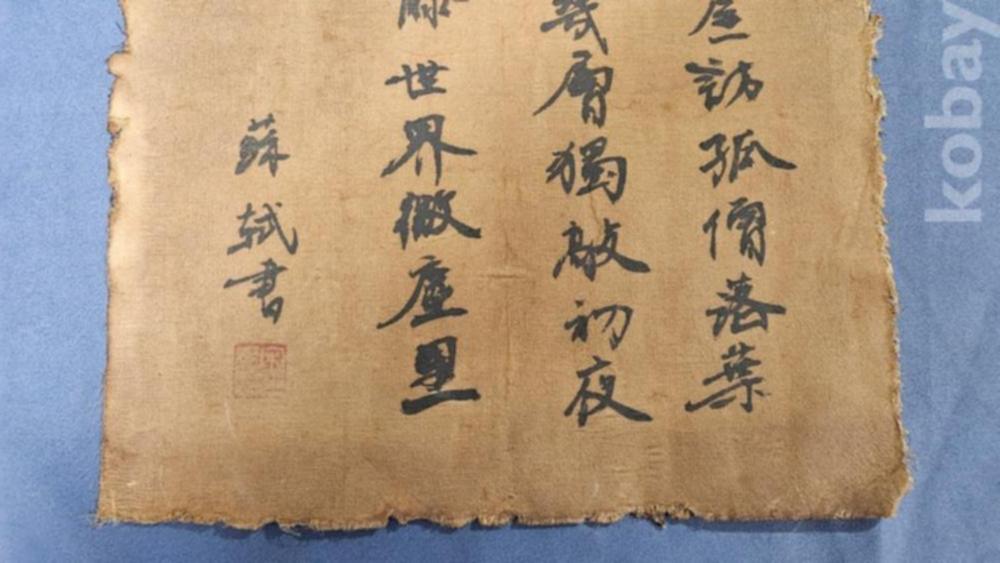 屋訪孤僧落葉
幾層獨敲初夜
藤世界微塵里
蘇軾書
kobay